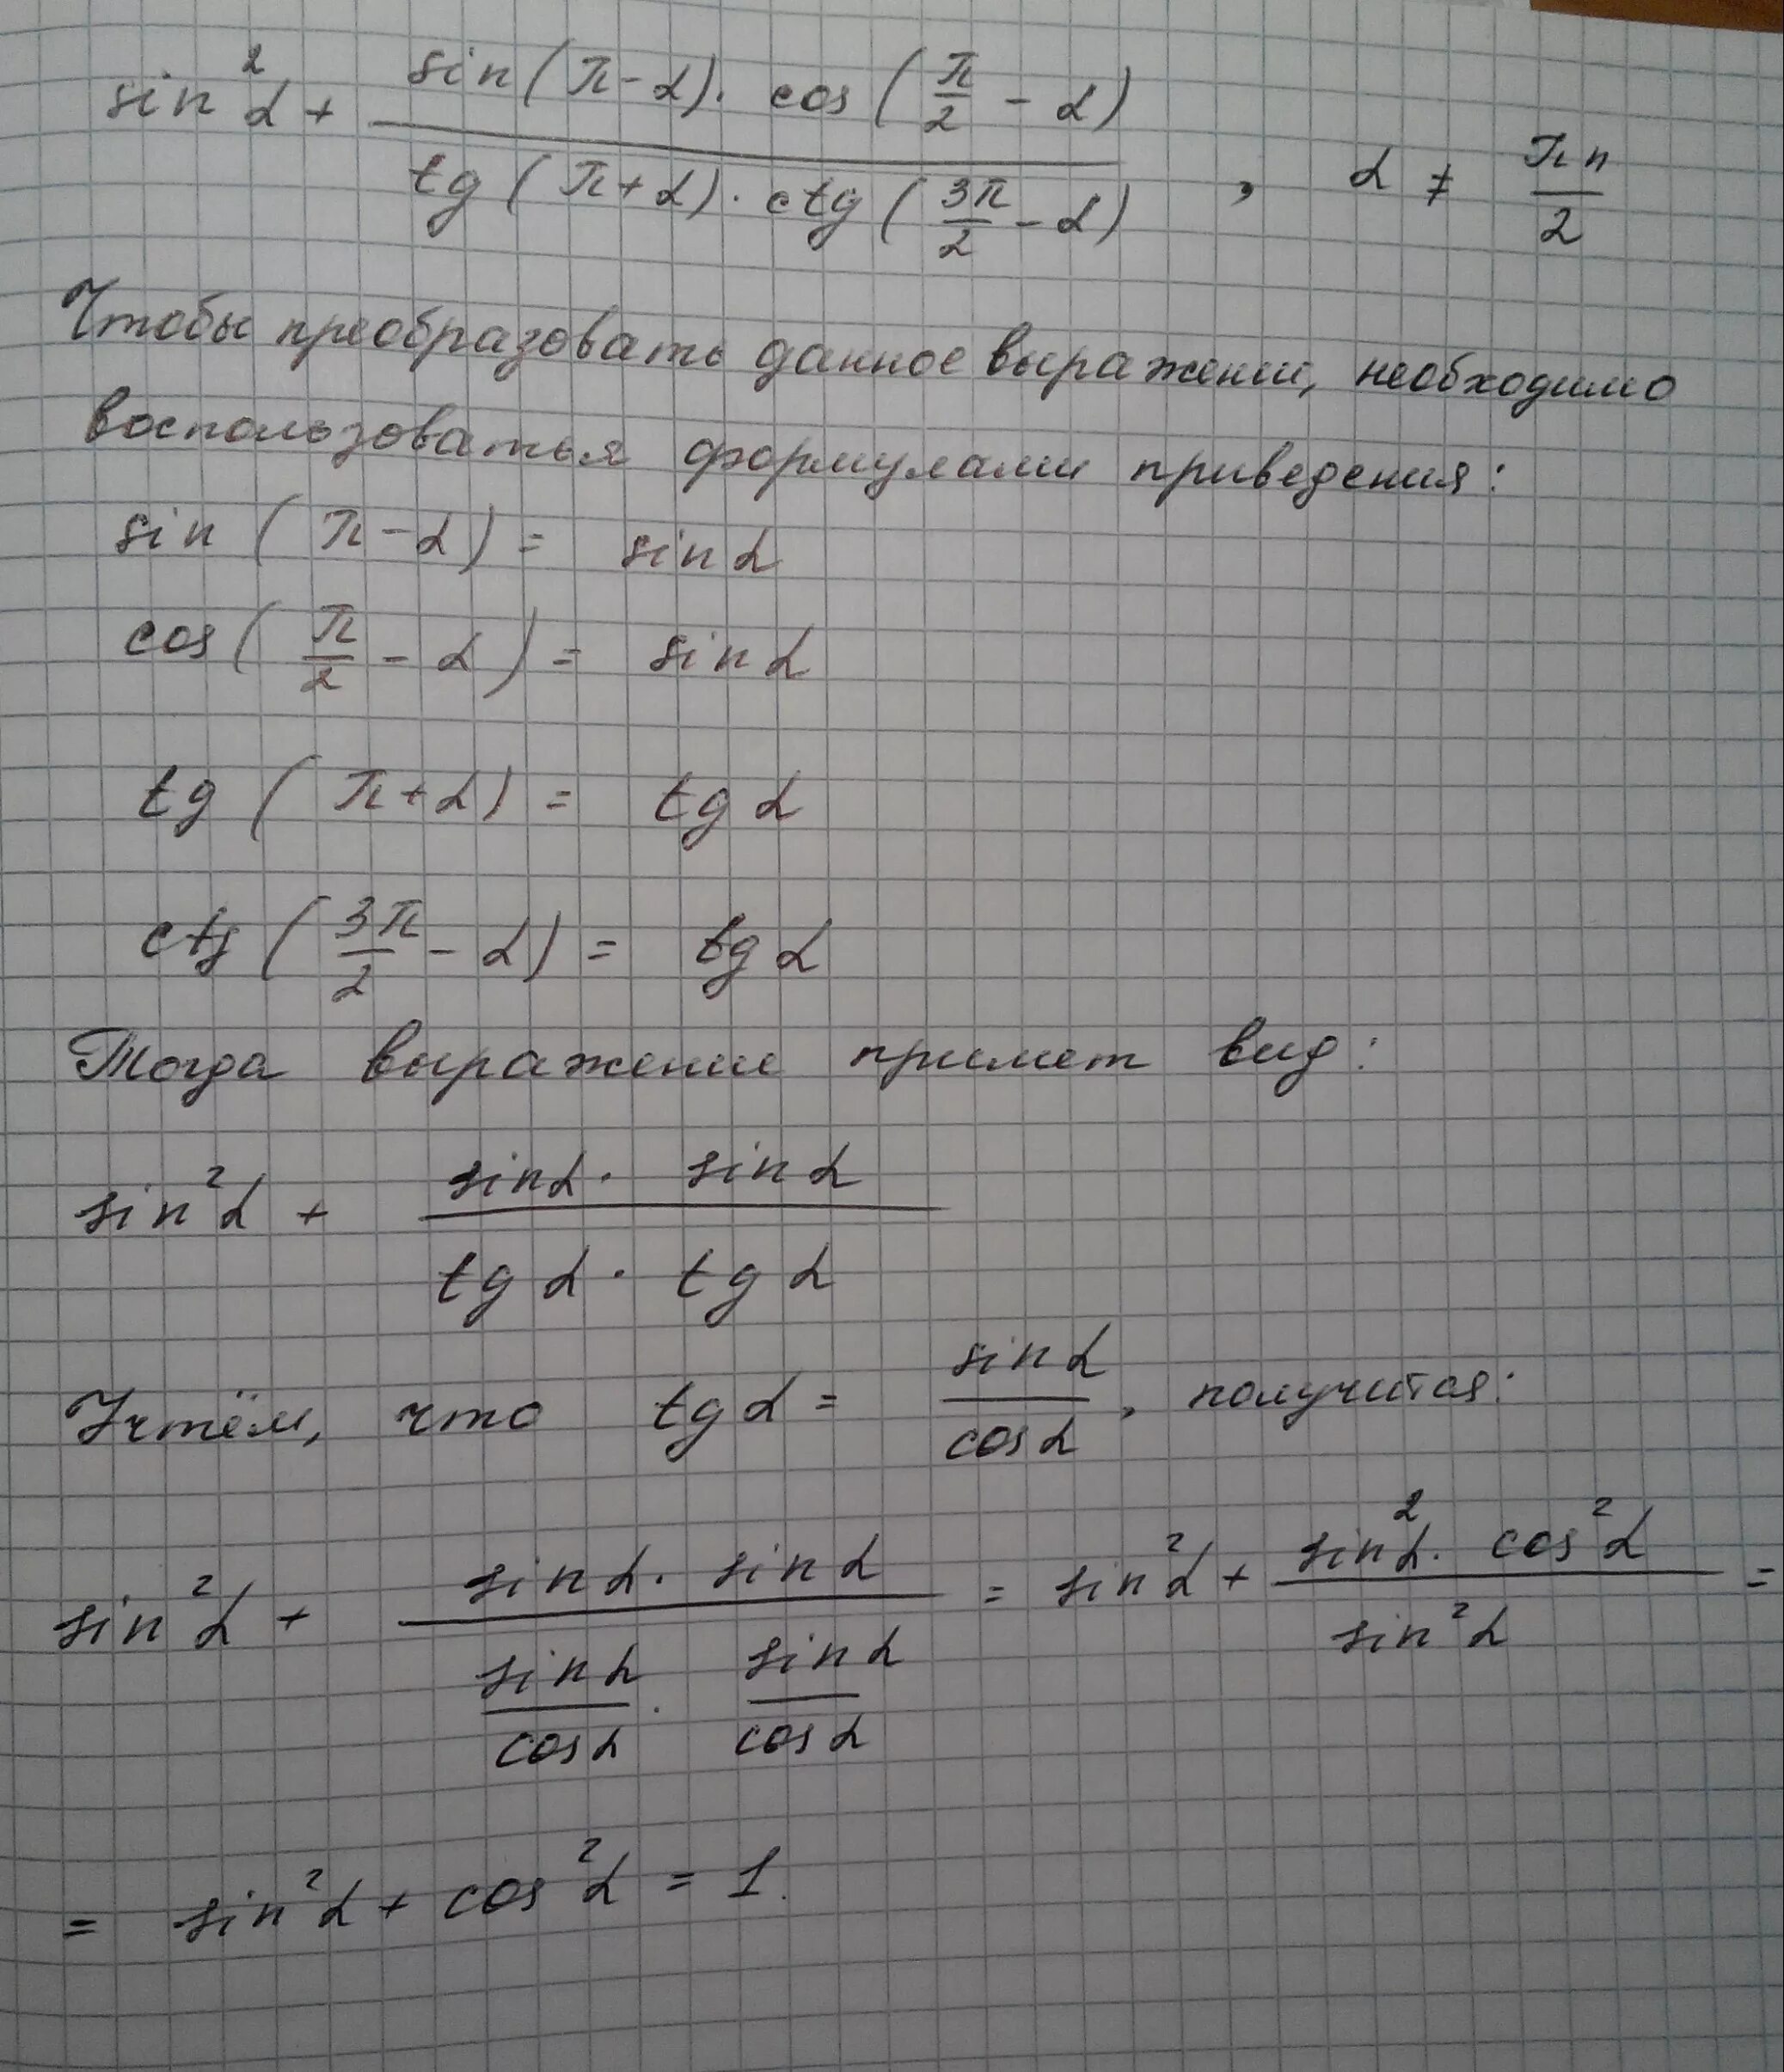 sin²α + (sin(π-α)· cos(π/2 - α))/(tg(π+α)· ctg(3π/2 - α)), α ≠ πn/2
Чтобы преобразовать данное выражении, необходимо
воспользоваться формулами приведения:
sin (π-α) = sin α
cos(π/2 - α) = sin α
tg (π+α) = tg α
ctg (3π/2 - α) = tg α
Тогда выражение примет вид:
sin²α + (sin α · sin α)/(tg α · tg α)
Учтём, что tg α = sin α/cos α, получится:
sin²α + (sin α · sin α)/(sin α/cos α · sin α/cos α) = sin²α + (sin²α · cos²α)/(sin²α) =
= sin²α + cos²α = 1.